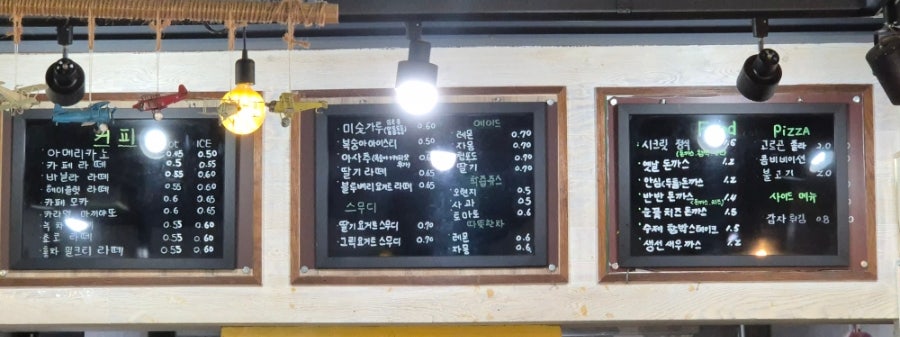 커피 ICE
아메리카노 0.45 0.50
카페 라떼 0.5 0.55
바닐라 라떼 0.55 0.60
헤이즐럿 라떼 0.55 0.60
카페 모카 0.6 0.65
카라멜 마끼아또 0.6 0.65
라떼 0.55 0.60
라떼 0.55 0.60
밀크티 라떼 0.55 0.60
미숫가루 0.60
복숭아 아이스티 0.50
아샷추
딸기 라떼 0.65
블루베리 요거트 라떼 0.65
스무디
딸기 요거트 스무디 0.70
그릭 요거트 스무디 0.70
에이드
레몬 0.70
자몽 0.70
청포도 0.70
딸기 0.70
생과일쥬스
오렌지 0.5
사과 0.5
토마토 0.6
따뜻한 차
레몬 0.6
자몽 0.6
Food
시크릿
옛날 돈까스 1.2
안심 돈까스 1.2
반반 돈까스 1.4
눈꽃 치즈 돈까스 1.5
수제 함박스테이크 1.5
생선 새우 까스 1.2
PIZZA
고르곤 졸라 2.0
콤비네이션 2.0
불고기 2.0
사이드 메뉴
감자 튀김 0.8